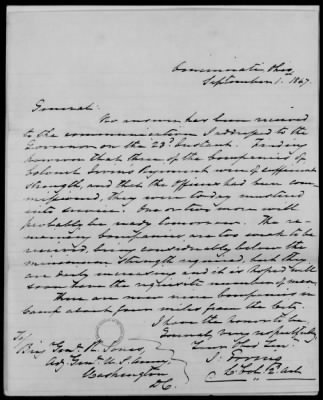 Cincinnati Ohio
September 1. 1847.
General:
No answer has been received
to the communication I addressed to the
Governor on the 23d Instant. Finding
however that three of the Companies of
Colonel Irvins Regiment were of sufficient
strength, and that the officers had been com-
missioned, they were today mustered
into service. One or two more will
probably be ready tomorrow. The re-
maining companies are too weak to be
received, being considerably below the
minimum strength required, but they
are daily increasing and it is hoped will
soon have the requisite number of men.
There are now nine companies in
Camp about four miles from the City.
I have the honor to be,
General, very respectfully
Your Obdt Servt
To
Brig Genl. R. Jones
Adj. Genl. U.S. Army,
Washington
D.C.